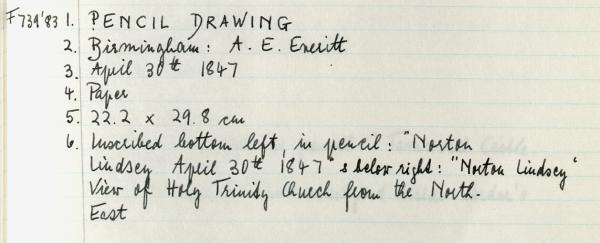 F739'83 1. PENCIL DRAWING
2. Birmingham: A. E. Everitt
3. April 30th 1847
4. Paper
5. 22.2 x 29.8 cm
6. Inscribed bottom left, in pencil: "Norton
Lindsey April 30th 1847" & below right: "Norton Lindsey"
View of Holy Trinity Church from the North-
East